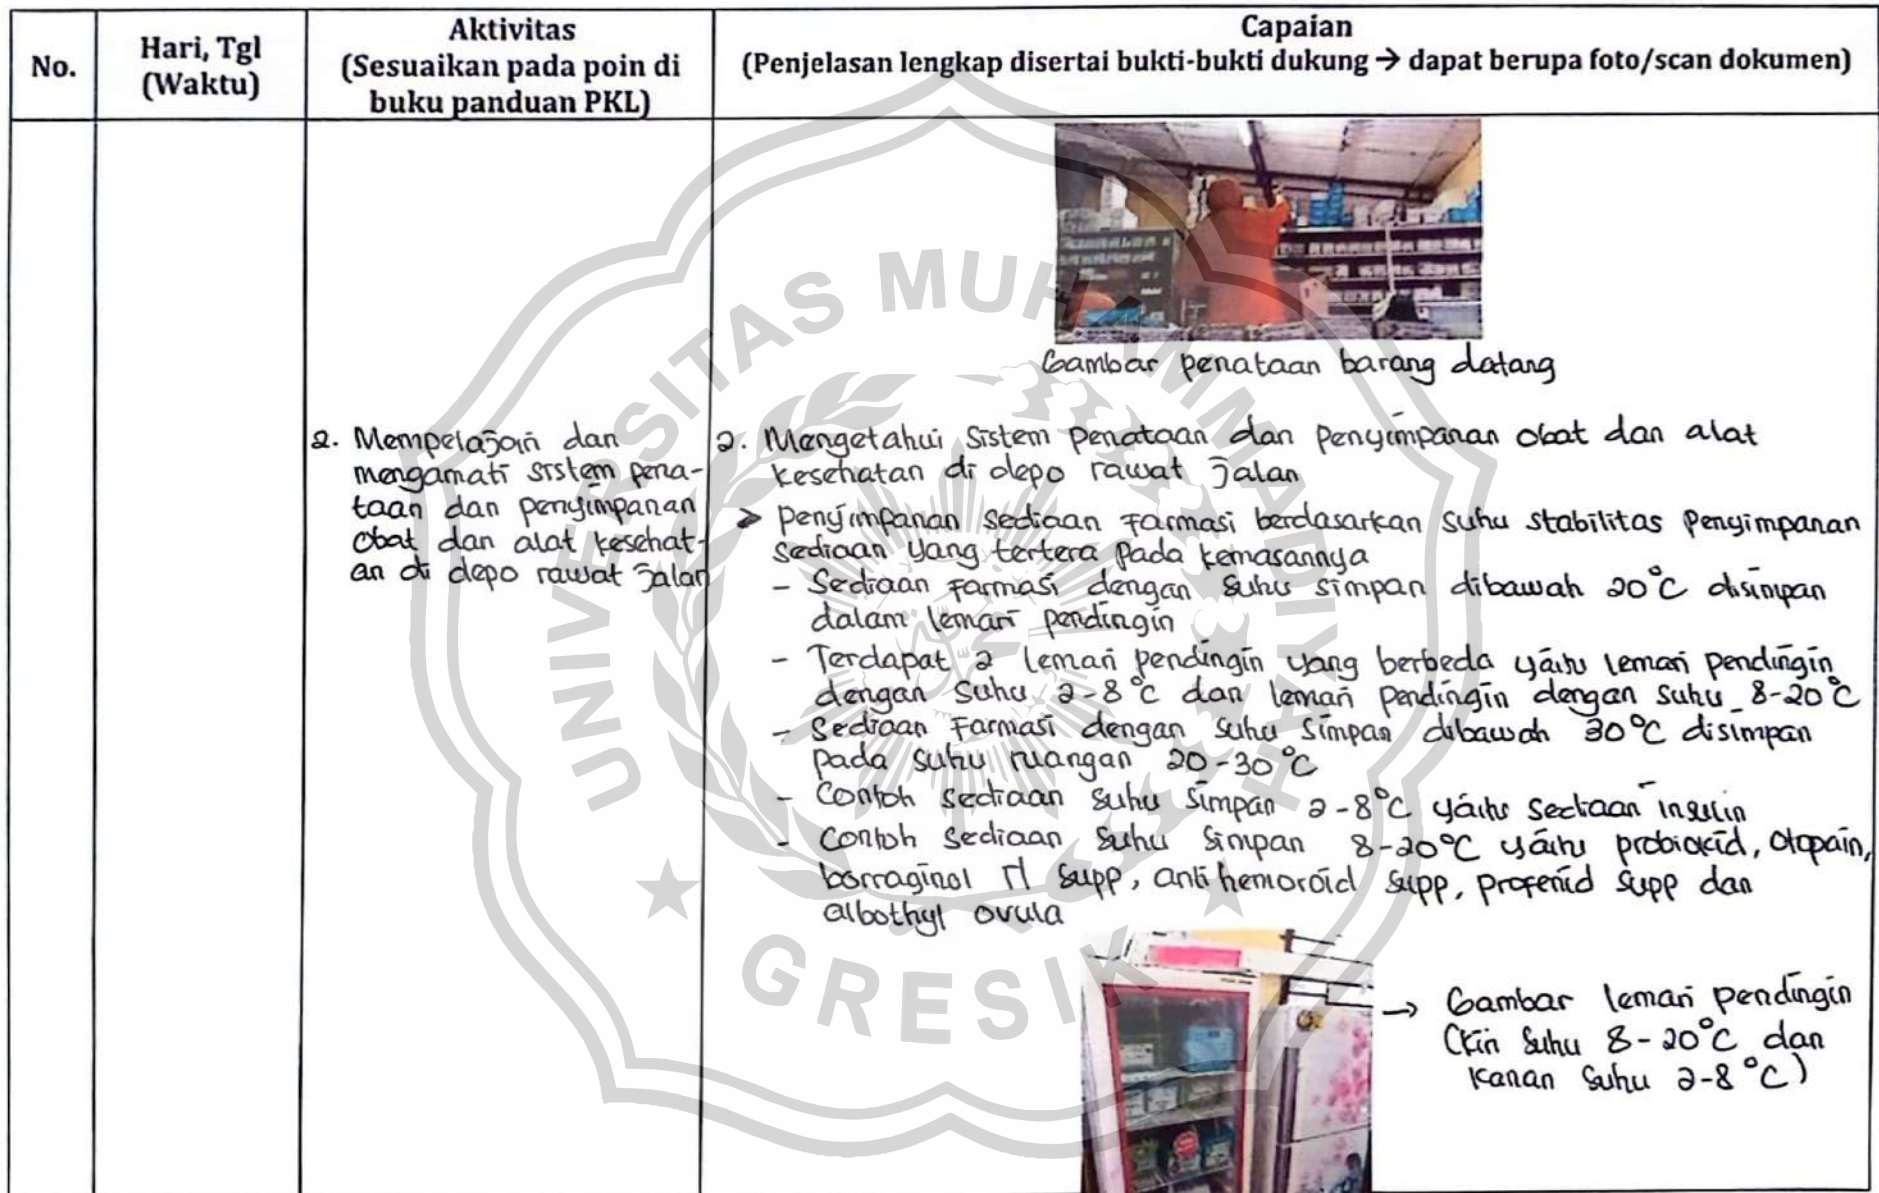 No.
Hari, Tgl
(Waktu)
Aktivitas
(Sesuaikan pada poin di
buku panduan PKL)
Capaian
(Penjelasan lengkap disertai bukti-bukti dukung → dapat berupa foto/scan dokumen)
Gambar penataan barang datang
2. Mempelajari dan
mengamati sistem pena-
taan dan penyimpanan
obat dan alat kesehat-
an di depo rawat jalan
2. Mengetahui sistem penataan dan penyimpanan obat dan alat
kesehatan di depo rawat jalan
> Penyimpanan sediaan farmasi berdasarkan suhu stabilitas penyimpanan
sediaan yang tertera pada kemasannya
- Sediaan farmasi dengan suhu simpan dibawah 20°C disimpan
dalam lemari pendingin
- Terdapat 2 lemari pendingin yang berbeda yaitu lemari pendingin
dengan suhu 2-8°C dan lemari pendingin dengan suhu 8-20°C
- Sediaan farmasi dengan suhu simpan dibawah 30°C disimpan
pada suhu ruangan 20-30°C
- Contoh sediaan suhu simpan 2-8°C yaitu sediaan insulin
- Contoh sediaan suhu simpan 8-20°C yaitu probiokid, otopain,
borraginol N supp, anti hemoroid supp, profenid supp dan
albothyl ovula
→ Gambar lemari pendingin
(kiri suhu 8-20°C dan
kanan suhu 2-8°C)
UNIVERSITAS MUHAMMADIYAH
GRESIK